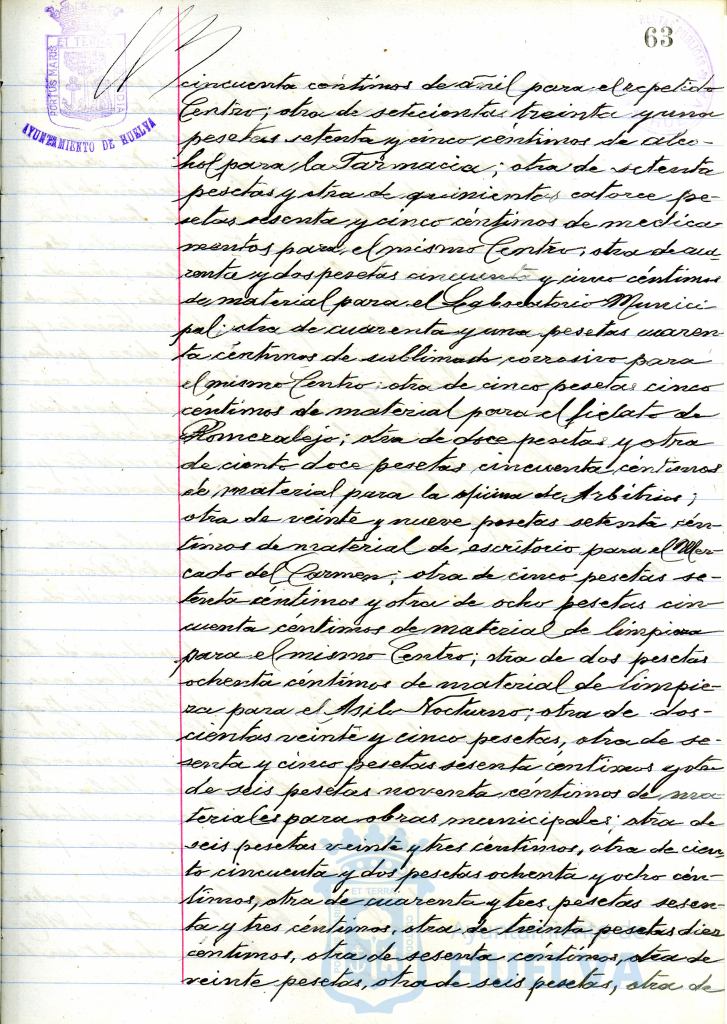 63
PORTUS MARIS ET TERRAE CUSTODIA
AYUNTAMIENTO DE HUELVA
cincuenta céntimos de añil para el repetido
Centro; otra de setecientas treinta y una
pesetas setenta y cinco céntimos de alco-
hol para la Farmacia; otra de setenta
pesetas y otra de quinientas catorce pe-
setas sesenta y cinco céntimos de medica
mentos para el mismo Centro; otra de cua-
renta y dos pesetas cincuenta y cinco céntimos
de material para el Laboratorio Munici
pal; otra de cuarenta y una pesetas cuaren
ta céntimos de sublimado corrosivo para
el mismo Centro; otra de cinco pesetas cinco
céntimos de material para el fielato de
Romeralejo; otra de doce pesetas y otra
de ciento doce pesetas cincuenta céntimos
de material para la oficina de Arbitrios;
otra de veinte y nueve pesetas setenta cén-
timos de material de escritorio para el Mer-
cado del Carmen; otra de cinco pesetas se-
tenta céntimos y otra de ocho pesetas cin
cuenta céntimos de material de limpieza
para el mismo Centro; otra de dos pesetas
ochenta céntimos de material de limpie-
za para el Asilo Nocturno; otra de dos-
cientas veinte y cinco pesetas, otra de se-
senta y cinco pesetas sesenta céntimos y otra
de seis pesetas noventa céntimos de ma
teriales para obras municipales; otra de
seis pesetas veinte y tres céntimos, otra de cien-
to cincuenta y dos pesetas ochenta y ocho cén-
timos, otra de cuarenta y tres pesetas sesen-
ta y tres céntimos, otra de treinta pesetas diez
céntimos, otra de sesenta céntimos, otra de
veinte pesetas, otra de seis pesetas, otra de
Ayuntamiento de
HUELVA